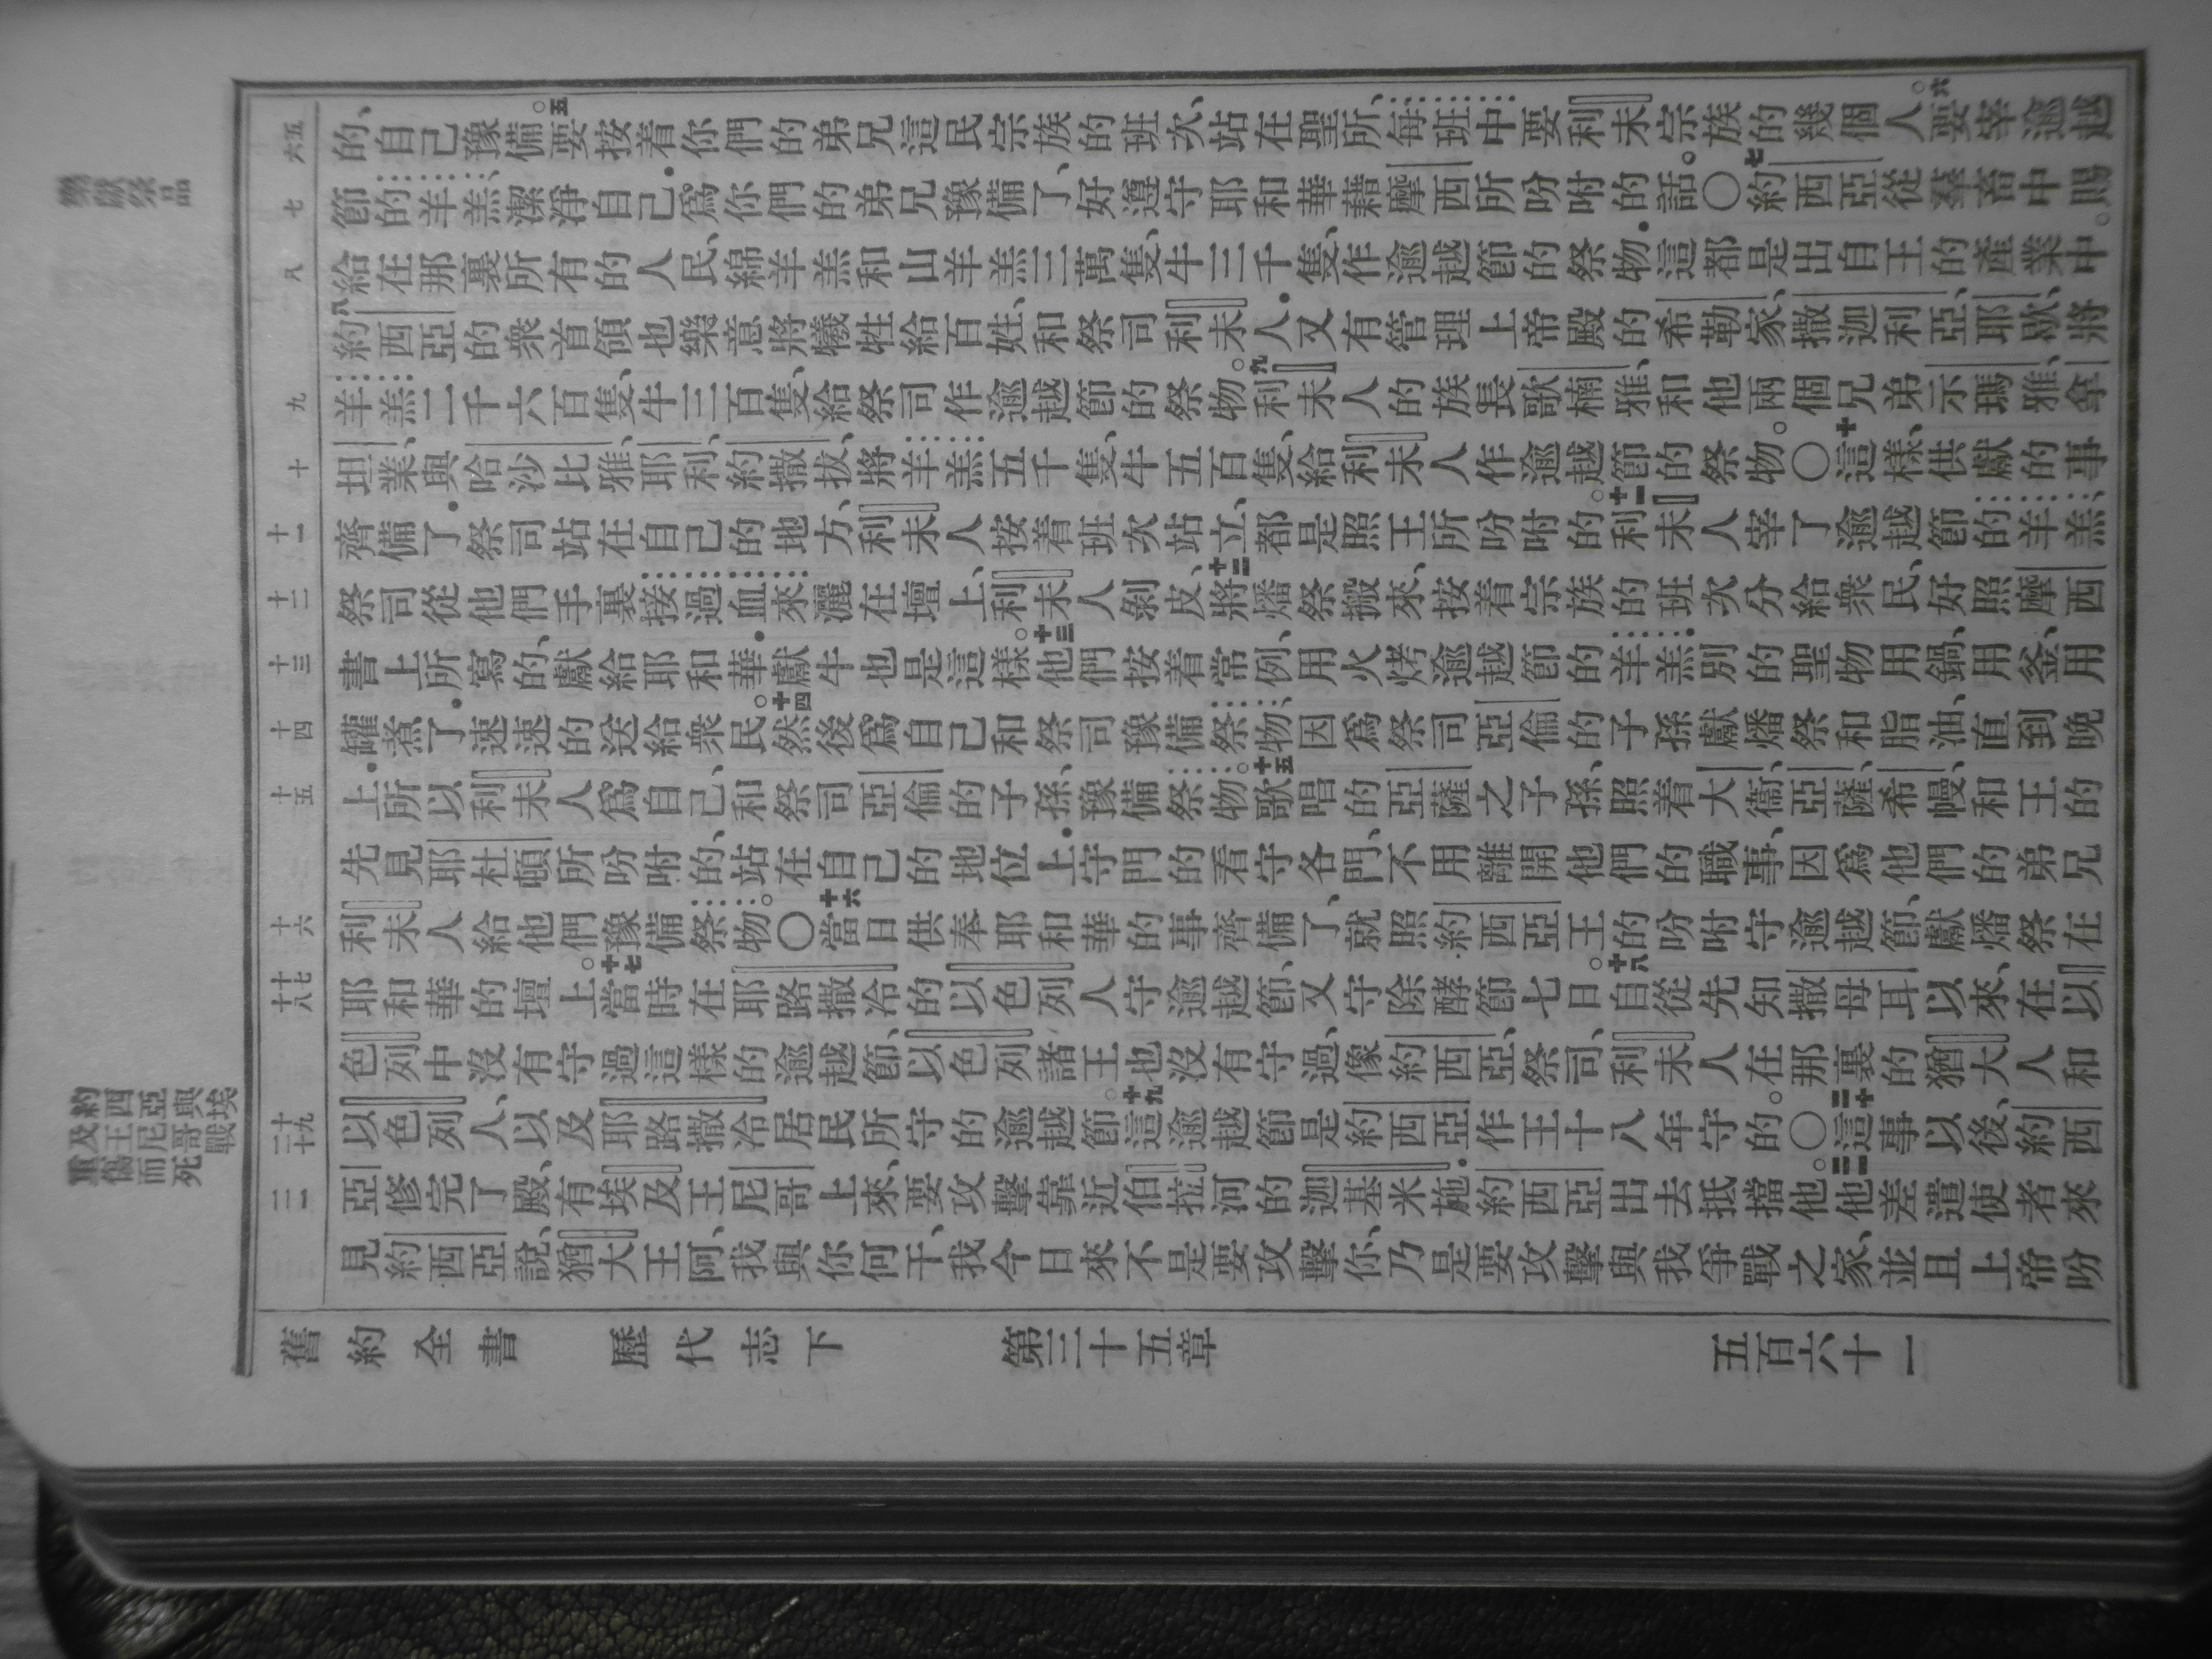 的、自己豫備。五要按着你們的弟兄這民宗族的班次、站在聖所、每班中要利未宗族的幾個人。六要宰逾越
節的羊羔、潔淨自己．爲你們的弟兄豫備了、好遵守耶和華藉摩西所吩咐的話。〇七約西亞從羣畜中賜
給在那裏所有的人民、綿羊羔和山羊羔三萬隻、牛三千隻、作逾越節的祭物．這都是出自王的產業中。
八約西亞的衆首領也樂意將犧牲給百姓、和祭司利未人．又有管理上帝殿的希勒家、撒迦利亞、耶歇、將
羊羔二千六百隻、牛三百隻、給祭司作逾越節的祭物。九利未人的族長歌楠雅、和他兩個兄弟示瑪雅、拿
坦業、與哈沙比雅、耶利、約撒拔、將羊羔五千隻、牛五百隻、給利未人作逾越節的祭物。〇十這樣、供獻的事
齊備了．祭司站在自己的地方、利未人按着班次站立、都是照王所吩咐的。十一利未人宰了逾越節的羊羔、
祭司從他們手裏接過血來、灑在壇上、利未人剝皮、十二將燔祭搬來、按着宗族的班次分給衆民、好照摩西
書上所寫的、獻給耶和華．獻牛也是這樣。十三他們按着常例、用火烤逾越節的羊羔．別的聖物用鍋、用釜、用
罐煮了．速速的送給衆民。十四然後爲自己和祭司豫備祭物、因爲祭司亞倫的子孫獻燔祭和脂油、直到晚
上．所以利未人爲自己、和祭司亞倫的子孫、豫備祭物。十五歌唱的亞薩之子孫、照着大衞、亞薩、希幔、和王的
先見耶杜頓所吩咐的、站在自己的地位上．守門的看守各門、不用離開他們的職事、因爲他們的弟兄
利未人給他們豫備祭物。〇十六當日供奉耶和華的事齊備了、就照約西亞王的吩咐守逾越節、獻燔祭在
耶和華的壇上。十七當時在耶路撒冷的以色列人守逾越節、又守除酵節七日。十八自從先知撒母耳以來、在以
色列中沒有守過這樣的逾越節、以色列諸王也沒有守過、像約西亞、祭司、利未人、在那裏的猶大人和
以色列人、以及耶路撒冷居民所守的逾越節。十九這逾越節是約西亞作王十八年守的。〇二十這事以後、約西
亞修完了殿、有埃及王尼哥上來、要攻擊靠近伯拉河的迦基米施．約西亞出去抵擋他。二一他差遣使者來
見約西亞說、猶大王阿、我與你何干、我今日來不是要攻擊你、乃是要攻擊與我爭戰之家、並且上帝吩
舊約全書 歷代志下 第三十五章 五百六十一
六五
七
八
九
十
十一
十二
十三
十四
十五
十六
十七
十八
十九
二十
二一
樂獻祭品
約西亞與埃
及王尼哥戰
重傷而死